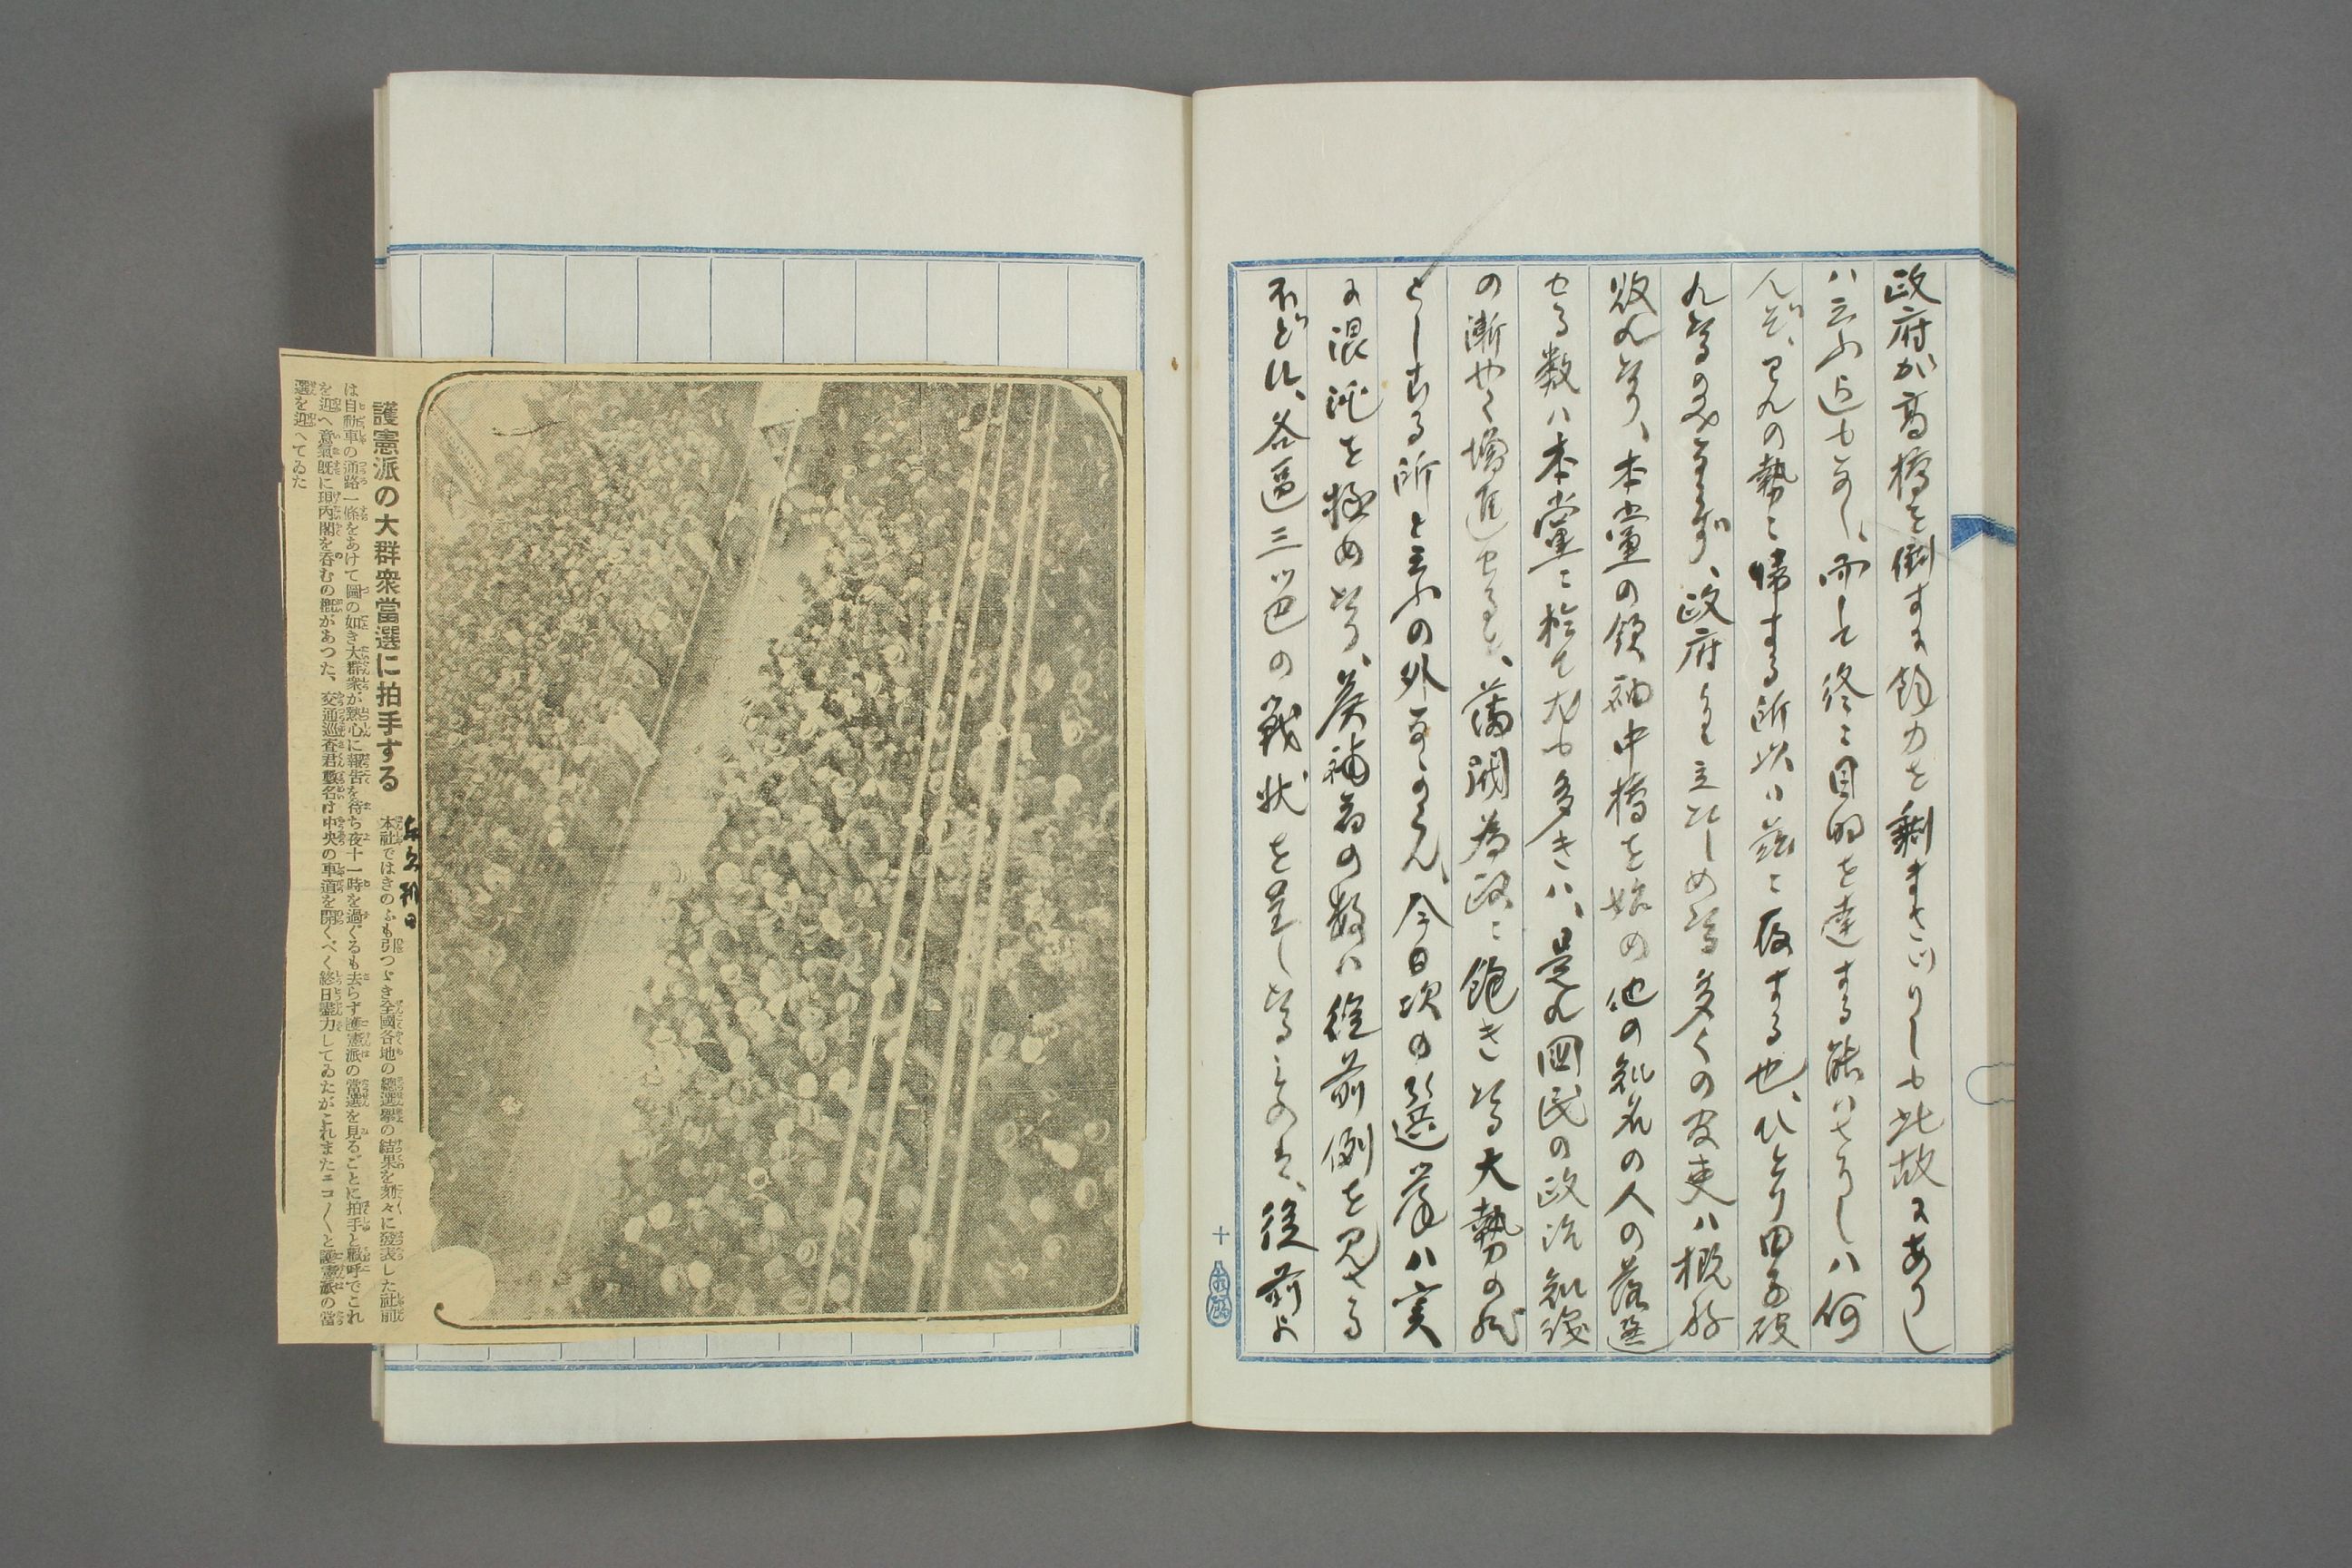 政府が高橋を倒すに餘力を剰まさゞりしも此故にありし
ハ云ふ迄もなし、而して終に目的を達する能はざりしハ何
んぞ、これの勢に帰する所以ハ茲に存する也、ひとり田子破
れたるのみならず、政府をして立たしめたる多くの官吏ハ概好
敗れたり、本黨の領袖中橋を始め他の知名の人の落選
せる数ハ本黨に於て尤も多きハ、是れ国民の政治知識
の漸やく増進せると、藩閥為政に飽きたる大勢の然
らしむる所と云ふの外なからん、今日次の選挙ハ実
に混沌を極めたる、候補者の数ハ従前例を見ざる
ほどに、各區三ツ巴の戦状を呈したるものは、従前よ
十
護憲派の大群衆當選に拍手する
本社ではきのふも引つゞき全國各地の總選擧の結果を刻々に發表した社前
は自動車の通路一條をあけて圖の如き大群衆が熱心に報告を待ち夜十一時を過ぐるも去らず護憲派の當選を見るごとに拍手と歡呼でこれ
を迎へ意氣既に現内閣を呑むの概があつた、交通巡査君數名は中央の車道を開くべく終日盡力してゐたがこれまたニコ〳〵と護憲派の當
選を迎へてゐた